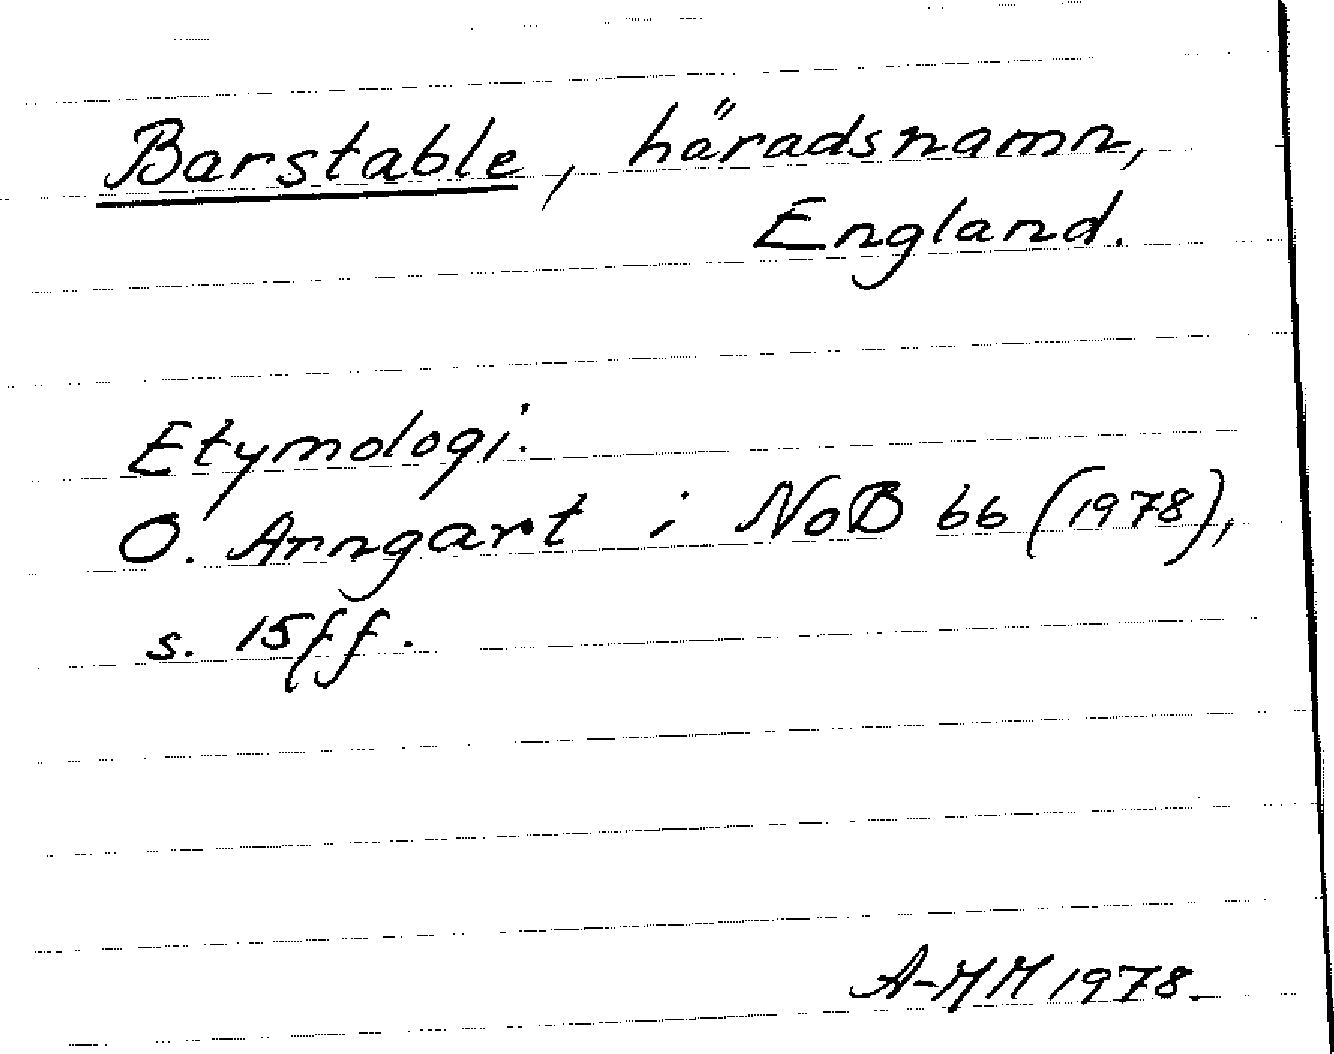 Barstable, häradsnamn,
England.
Etymologi.
O. Arngart i NoB 66 (1978),
s. 15ff.
A-MM 1978